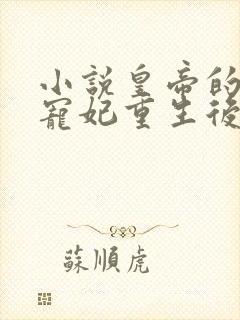 小說皇帝的
寵妃重生後
蘇順虎